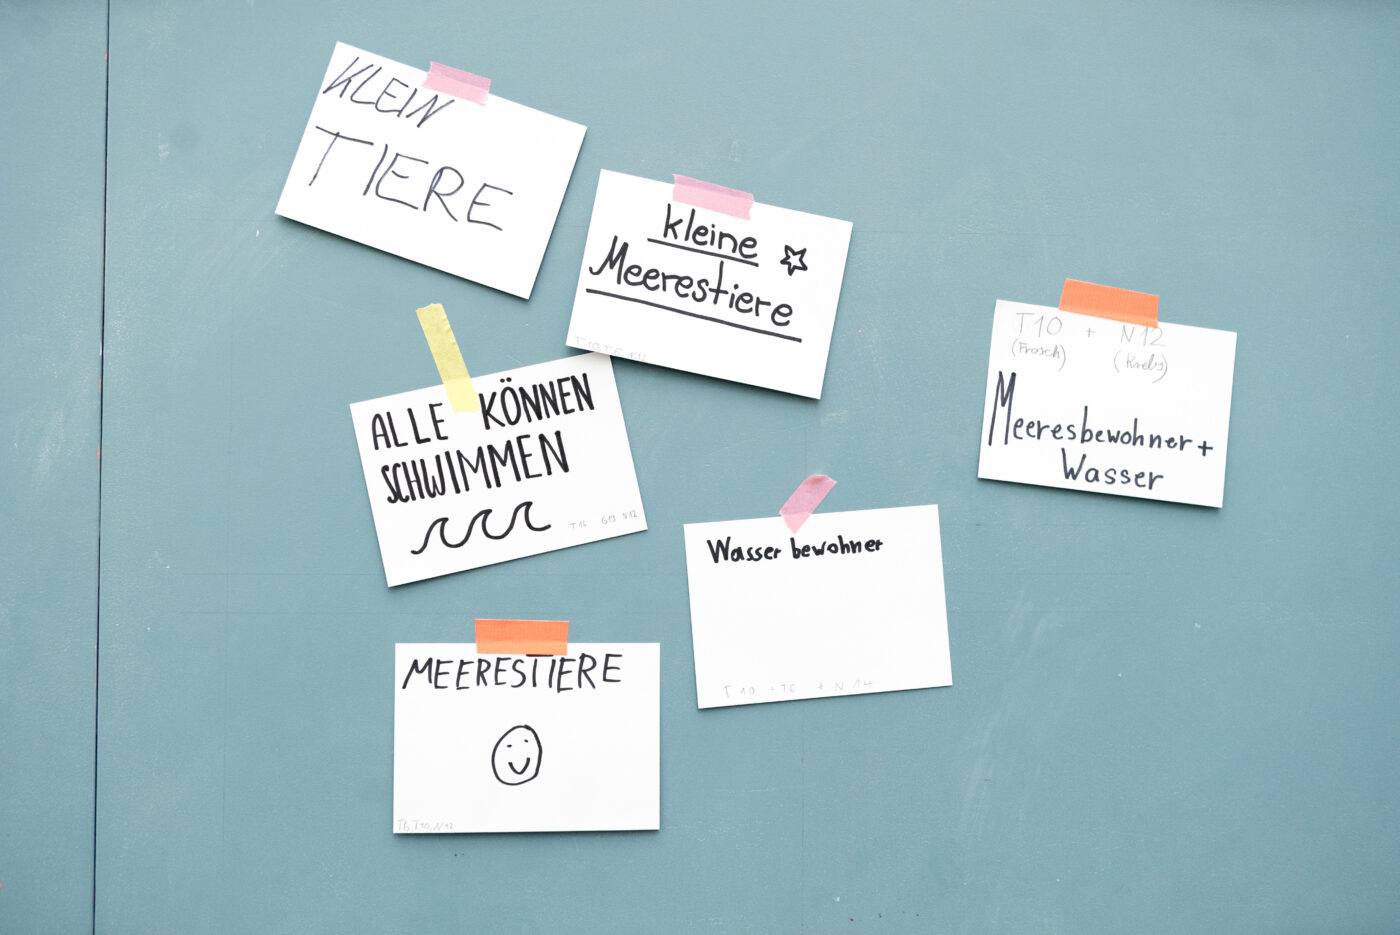 KLEIN
TIERE
kleine
Meerestiere
T10 + N12
(Frosch) (Krebs)
Meeresbewohner +
Wasser
ALLE KÖNNEN
SCHWIMMEN
T14 G13 N12
Wasserbewohner
T 10 + T6 + N 14
MEERESTIERE
T6, T10, N12